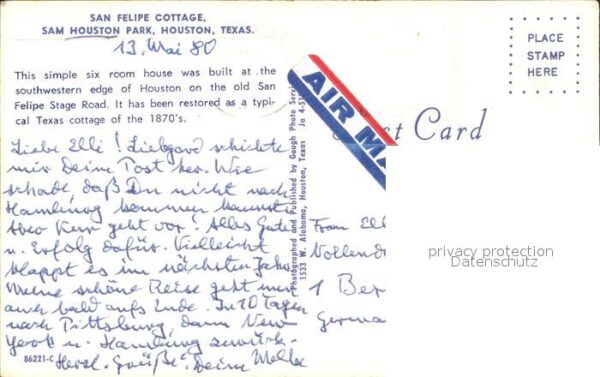 SAN FELIPE COTTAGE,
SAM HOUSTON PARK, HOUSTON, TEXAS.
13. Mai 80
This simple six room house was built at the
southwestern edge of Houston on the old San
Felipe Stage Road. It has been restored as a typi-
cal Texas cottage of the 1870's.
Liebe Elli! Liebgard schickte
mir Deine Post her. Wie
schade, daß Du nicht nach
Hamburg kommen kannst.
Aber Kur geht vor! Alles Gute
u. Erfolg dafür. Vielleicht
klappt es im nächsten Jahr.
Meine schöne Reise geht nun
auch bald aufs Ende. In 10 Tagen
nach Pittsburg, dann New
York u. Hamburg zurück.
Herzl. Grüße! Deine
86221-C
Photographed and Published by Gough Photo Service
1533 W. Alabama, Houston, Texas Ja 4-51
AIR MA
st Card
PLACE
STAMP
HERE
Frau Elli
1 Ber
Germa
privacy protection
Datenschutz